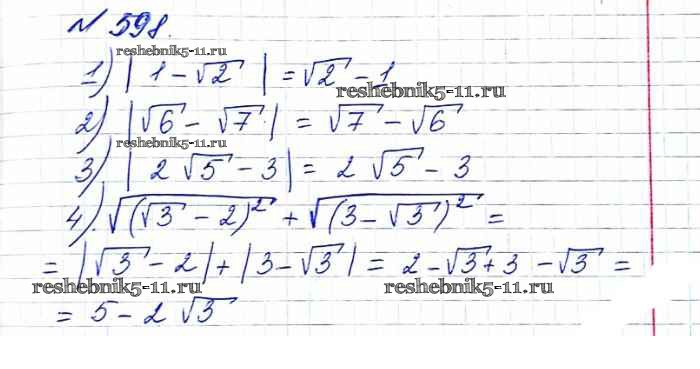 № 598.
reshebnik5-11.ru
1) | 1 - √2 | = √2 - 1
reshebnik5-11.ru
2) |√6 - √7| = √7 - √6
reshebnik5-11.ru
3) | 2 √5 - 3 | = 2 √5 - 3
4). √(√3 - 2)² + √(3 - √3)² =
= |√3 - 2| + |3 - √3| = 2 - √3 + 3 - √3 =
reshebnik5-11.ru reshebnik5-11.ru
= 5 - 2 √3